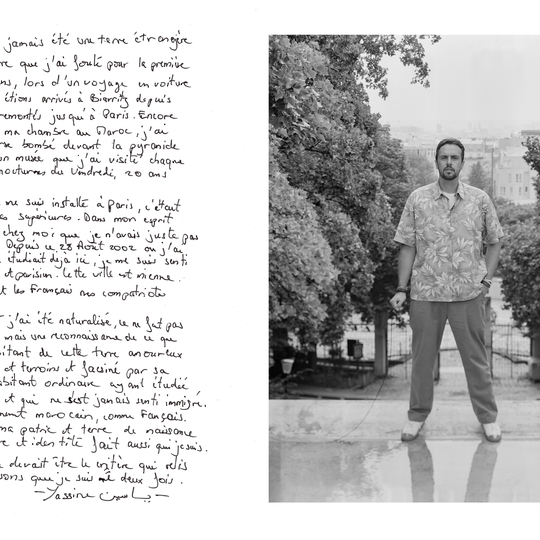 jamais été une terre étrangère
re que j'ai foulé pour la première
ns, lors d'un voyage en voiture
étions arrivés à Biarritz depuis
remontés jusqu'à Paris. Encore
ma chambre au Maroc, j'ai
rse bombé devant la pyramide
on musée que j'ai visité chaque
nocturnes du Vendredi, 20 ans
ne suis installé à Paris, c'était
es supérieures. Dans mon esprit
chez moi que je n'avais juste pas
Depuis ce 28 Août 2002 où j'ai
étudiait déjà ici, je me suis senti
t parisien. Cette ville est mienne.
t les Français mes compatriotes
j'ai été naturalisé, ce ne fut pas
mais une reconnaissance de ce que
bitant de cette terre amoureux
et terroirs et fasciné par sa
abitant ordinaire ayant étudié
et qui ne s'est jamais senti immigré.
ment marocain, comme Français.
ma patrie et terre de naissance
re et identité fait aussi qui je suis.
e devait être le critère qui
sons que je suis né deux fois.
-Yassine ياسين-